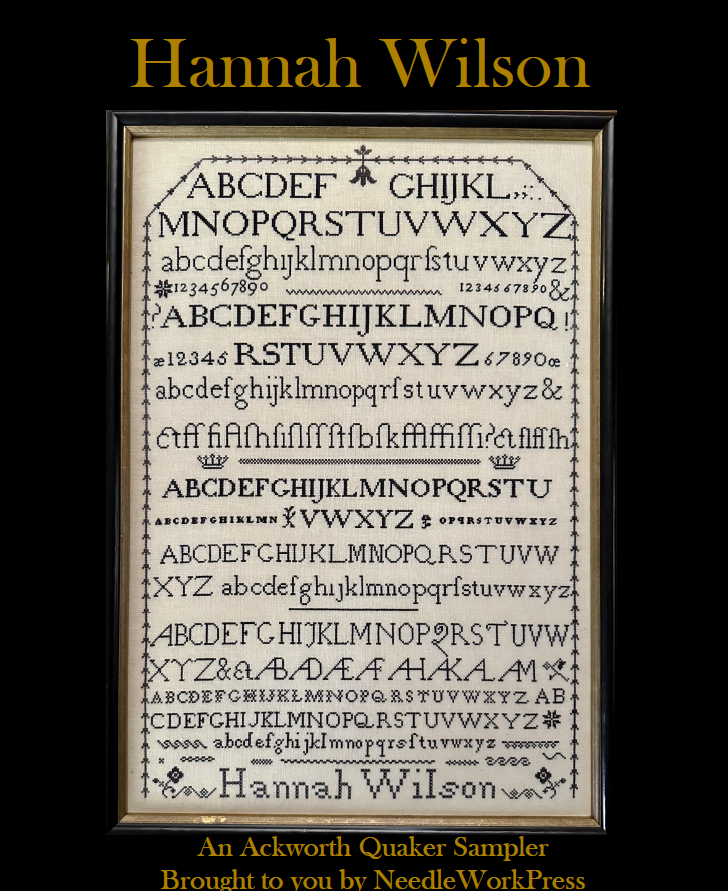 Hannah Wilson
ABCDEF GHIJKL,;:.
MNOPQRSTUVWXYZ
abcdefghijklmnopqrſstuvwxyz
1234567890 1234567890 &
?ABCDEFGHIJKLMNOPQ!
æ12345 RSTUVWXYZ 67890œ
abcdefghijklmnopqrſstuvwxyz&
ABCDEFGHIJKLMNOPQRSTU
ABCDEFGHIKLMN VWXYZ OPQRSTUVWXYZ
ABCDEFGHIJKLMNOPQRSTUVW
XYZ abcdefghijklmnopqrſstuvwxyz
ABCDEFGHIJKLMNOPQRSTUVW
XYZ&
ABCDEFGHIJKLMNOPQRSTUVWXYZ AB
CDEFGHIJKLMNOPQRSTUVWXYZ
abcdefghijklmnopqrsſtuvwxyz
Hannah Wilson
An Ackworth Quaker Sampler
Brought to you by NeedleWorkPress